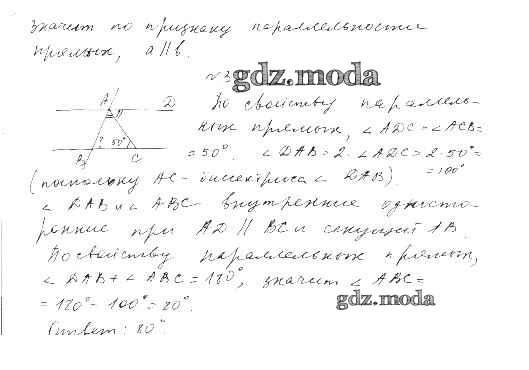 значит по признаку параллельности
прямых, a II b.
№3 gdz.moda
А D По свойству параллель-
ных прямых, ∠ADC = ∠ACB =
? 50° = 50°. ∠DAB = 2·∠ADC = 2·50° =
B C = 100°
(поскольку AC - биссектриса ∠ DAB).
∠ DAB и ∠ ABC - внутренние одност-
ронние при AD || BC и секущей AB.
По свойству параллельных прямых,
∠ DAB + ∠ ABC = 180°, значит ∠ ABC =
= 180° - 100° = 80°.
gdz.moda
Ответ: 80°.